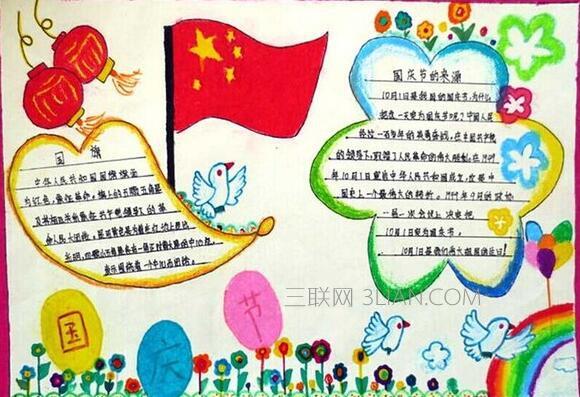 国旗
中华人民共和国国旗旗面
为红色,象征革命。旗上的五颗五角星
及其相互关系象征共产党领导下的革
命人民大团结。
国庆节的来源
10月1日是我国的国庆节,为什么
把这一天定为国庆节呢?中国人民
经过一百多年的英勇奋战,在中国共产党
的领导下,取得了人民革命的伟大胜利,在1949
年10月1日宣告中华人民共和国成立,这是中
国历史上一个最伟大的转折。1949年9月的政协
一届一次会议上决定把
10月1日定为国庆节。
10月1日是我们伟大祖国的生日!
三联网 3LIAN.COM
国庆节